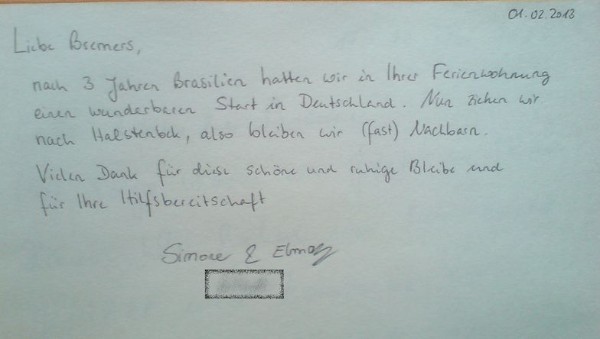 01.02.2013
Liebe Bremers,
nach 3 Jahren Brasilien hatten wir in Ihrer Ferienwohnung
einen wunderbaren Start in Deutschland. Nun ziehen wir
nach Halstenbek, also bleiben wir (fast) Nachbarn.
Vielen Dank für diese schöne und ruhige Bleibe und
für Ihre Hilfsbereitschaft
Simone &